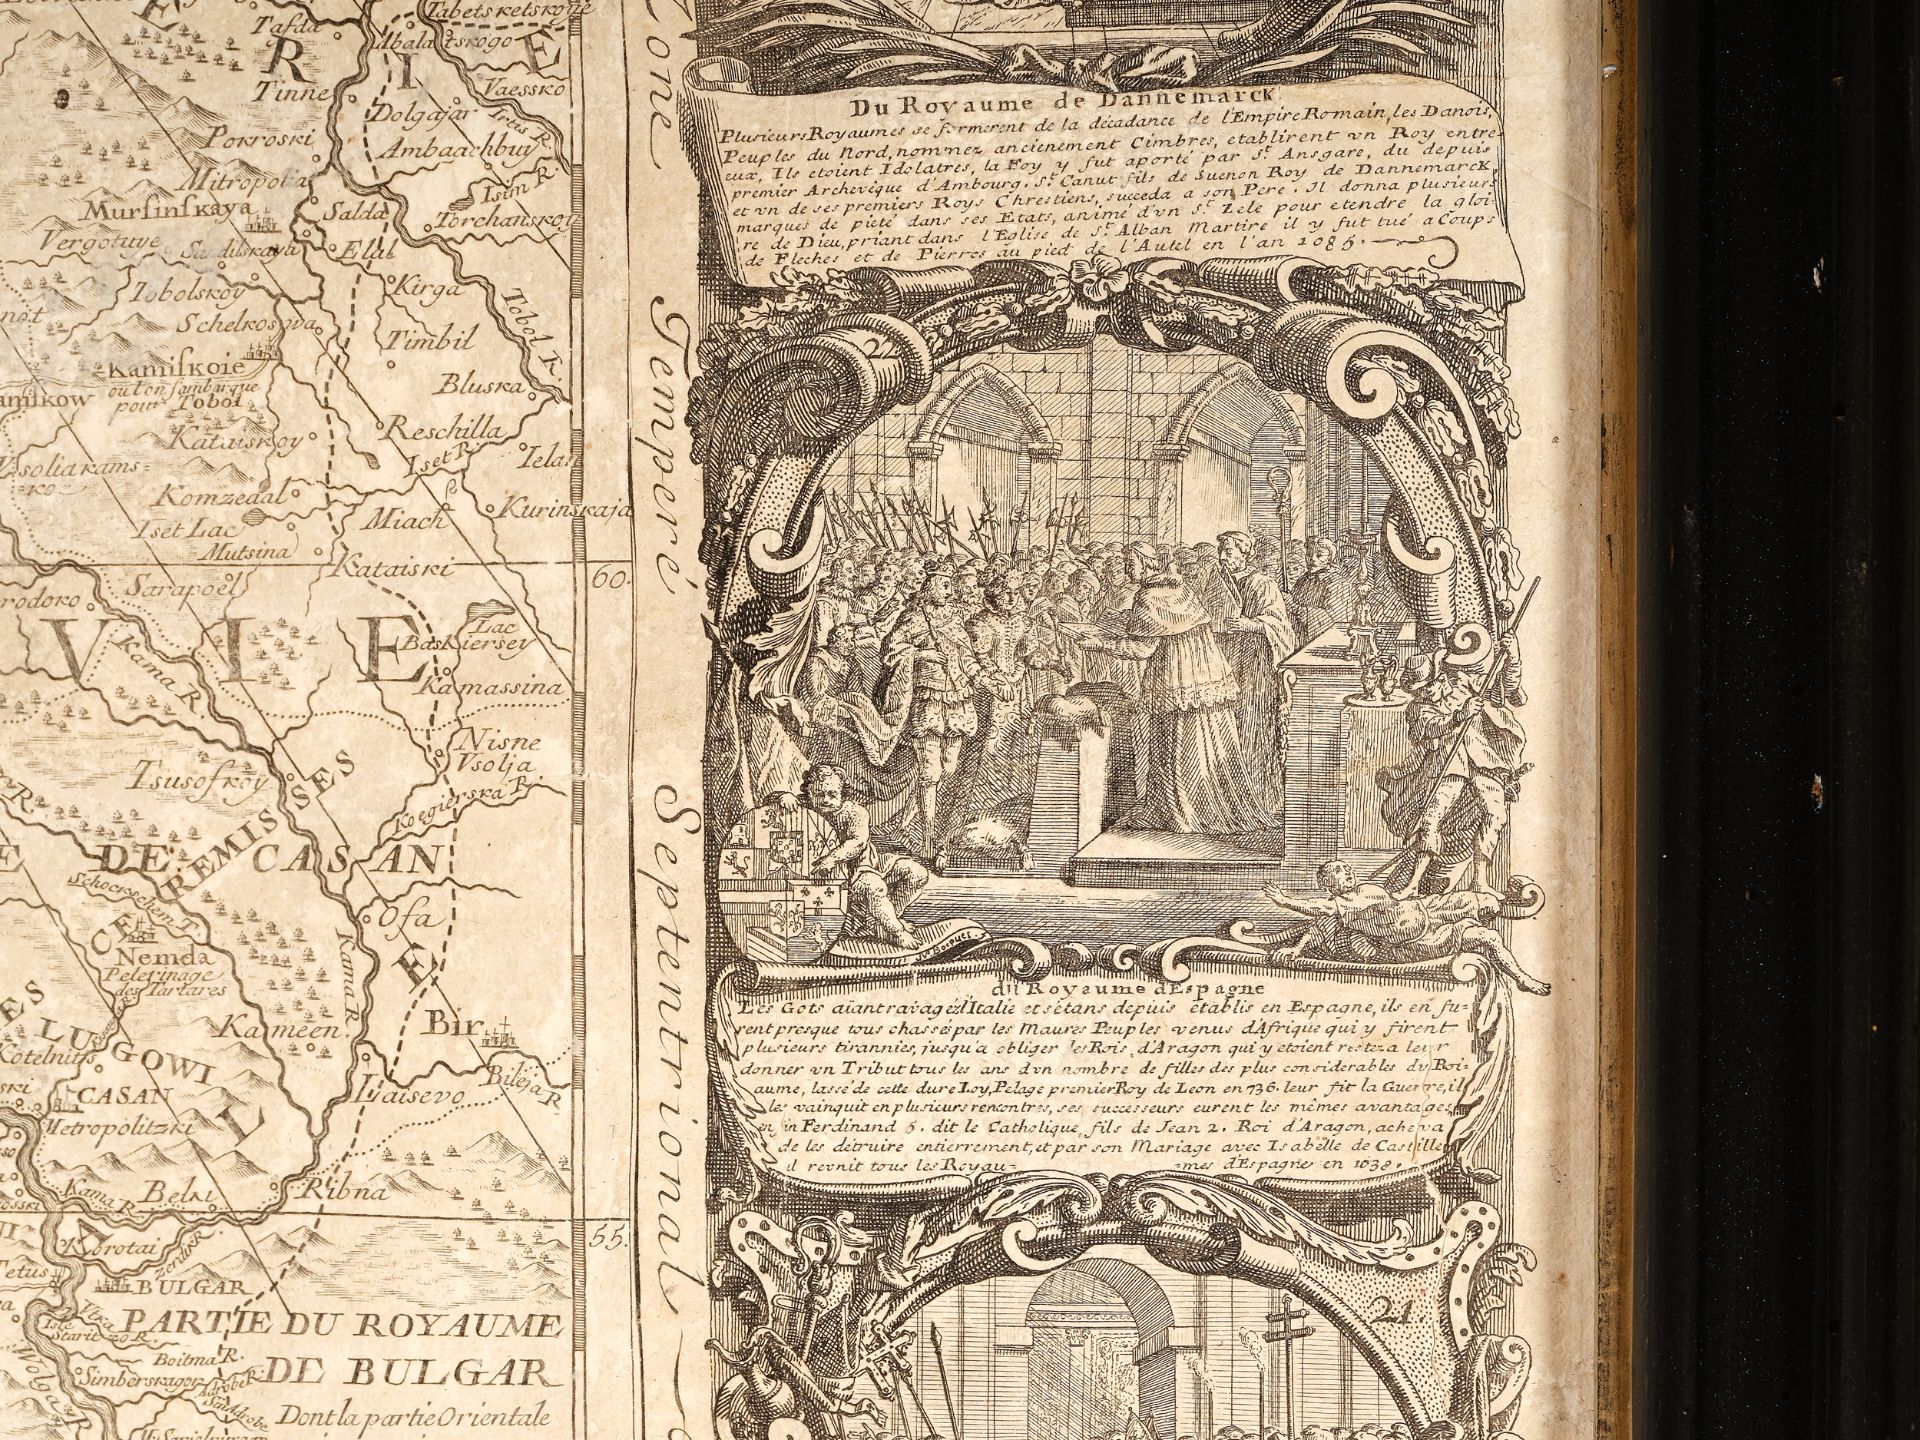 Tabetsketskoye
Tafda
Abalatskogo
E
R
I
E
Tinne
Vaessko
Dolgajar
Irtis R.
Pokroski
Ambaachbuy
Mitropolia
Isin R.
Mursinskaya
Salda
Torchanskoy
Vergotuye
Sudilskaya
Elal
Tobolskoy
Kirga
Tobol F.
Schelkoswa
Timbil
Kamiskoie
ou l'on sambarque
pour Tobol
Bluska
amikow
Reschilla
Kataiskoy
Iset R.
Ielan
Vsoliakams=
=ko
Komzedal
Miach
Kurinskaja
Iset Lac
Mutsina
Kataiski
60.
Sarapoel
rodoko
V I E
Lac
Baskiersey
Kama R.
Kamassina
Nisne
Vsolja
Tsusofkoy
Koegierska R.
E DE CASAN
CEREMISSES
Schockschem R.
Ofa
Nemda
Peletinage
des Tartares
E
Kama R.
Kameen
Bir
ES LUGOWI
Kotelnits
CASAN
Laisevo
Bileja R
Metropolitzki
L
Kama R.
Belki
Ribna
55.
Korotai
Tetus
BULGAR
PARTIE DU ROYAUME
DE BULGAR
Boitma R.
Simberskagora
Wolga R
Dont la partie Orientale
Zone Temperé Septentrional
Du Royaume de Dannemarck
Plusieurs Royaumes se formerent de la décadance de l'Empire Romain, les Danois,
Peuples du Nord, nommez anciennement Cimbres, etablirent vn Roy entre
eux, Ils etoient Idolatres, la Foy y fut aporté par St. Ansgare, du depuis
premier Archevêque d'Ambourg. St. Canut fils de Suenon Roy de Dannemarck
et vn de ses premiers Roys Chrestiens, succeda a son Pere. Il donna plusieurs
marques de pieté dans ses Etats, animé d'vn St. Zele pour etendre la gloi
re de Dieu, priant dans l'Eglise de St. Alban Martire il y fut tué a Coups
de Fleches et de Pierres au pied de l'Autel en l'an 1085.
22
du Royaume d'Espagne
Les Gots aiant ravagez l'Italie et setans depuis etablis en Espagne, ils en fu=
rent presque tous chassez par les Maures Peuples venus d'Afrique qui y firent
plusieurs tirannies, jusqu'a obliger les Rois d'Aragon qui y etoient restez a leur
donner vn Tribut tous les ans d'vn nombre de filles des plus considerables du Roi=
aume, lassé de cette dure Loy, Pelage premier Roy de Leon en 736. leur fit la Guerre, il
les vainquit en plusieurs rencontres, ses successeurs eurent les mêmes avantages,
enfin Ferdinand 5. dit le Catholique, fils de Jean 2. Roi d'Aragon, acheva
de les détruire entierrement, et par son Mariage avec Isabelle de Castille
il reunit tous les Royau= =mes d'Espagne en 1038.
21.